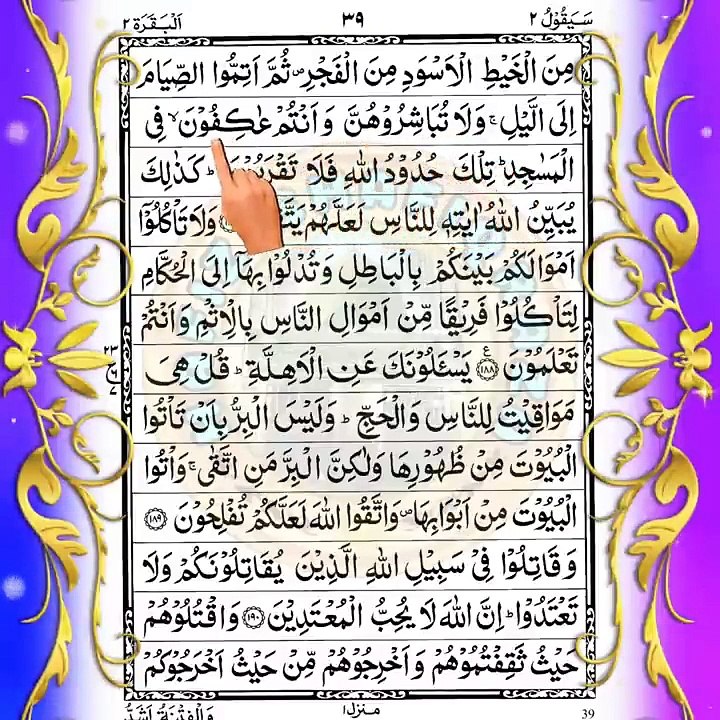 سَيَقُوْلُ ٢ ٣٩ اَلْبَقَرَة ٢
مِنَ الْخَيْطِ الْاَسْوَدِ مِنَ الْفَجْرِ ۪ ثُمَّ اَتِمُّوا الصِّيَامَ
اِلَى الَّيْلِ ۚ وَلَا تُبَاشِرُوْهُنَّ وَاَنْتُمْ عٰكِفُوْنَ ۙ فِى
الْمَسٰجِدِ ؕ تِلْكَ حُدُوْدُ اللّٰهِ فَلَا ؕ كَذٰلِكَ
يُبَيِّنُ اللّٰهُ اٰيٰتِهٖ لِلنَّاسِ لَعَلَّهُمْ وَلَا تَاْكُلُوْٓا
اَمْوَالَكُمْ بَيْنَكُمْ بِالْبَاطِلِ وَتُدْلُوْا بِهَاۤ اِلَى الْحُكَّامِ
لِتَاْكُلُوْا فَرِيْقًا مِّنْ اَمْوَالِ النَّاسِ بِالْاِثْمِ وَاَنْتُمْ
تَعْلَمُوْنَ ﴿١٨٨﴾ ع يَسْـَٔلُوْنَكَ عَنِ الْاَهِلَّةِ ؕ قُلْ هِىَ
٢٣ ع ٦ ٧
مَوَاقِيْتُ لِلنَّاسِ وَالْحَجِّ ؕ وَلَيْسَ الْبِرُّ بِاَنْ تَاْتُوا
الْبُيُوْتَ مِنْ ظُهُوْرِهَا وَلٰكِنَّ الْبِرَّ مَنِ اتَّقٰى ۚ وَاْتُوا
الْبُيُوْتَ مِنْ اَبْوَابِهَا ۪ وَاتَّقُوا اللّٰهَ لَعَلَّكُمْ تُفْلِحُوْنَ ﴿١٨٩﴾
وَقَاتِلُوْا فِىْ سَبِيْلِ اللّٰهِ الَّذِيْنَ يُقَاتِلُوْنَكُمْ وَلَا
تَعْتَدُوْا ؕ اِنَّ اللّٰهَ لَا يُحِبُّ الْمُعْتَدِيْنَ ﴿١٩٠﴾ وَاقْتُلُوْهُمْ
حَيْثُ ثَقِفْتُمُوْهُمْ وَاَخْرِجُوْهُمْ مِّنْ حَيْثُ اَخْرَجُوْكُمْ
39 منزل ١ وَالْفِتْنَةُ اَشَدُّ